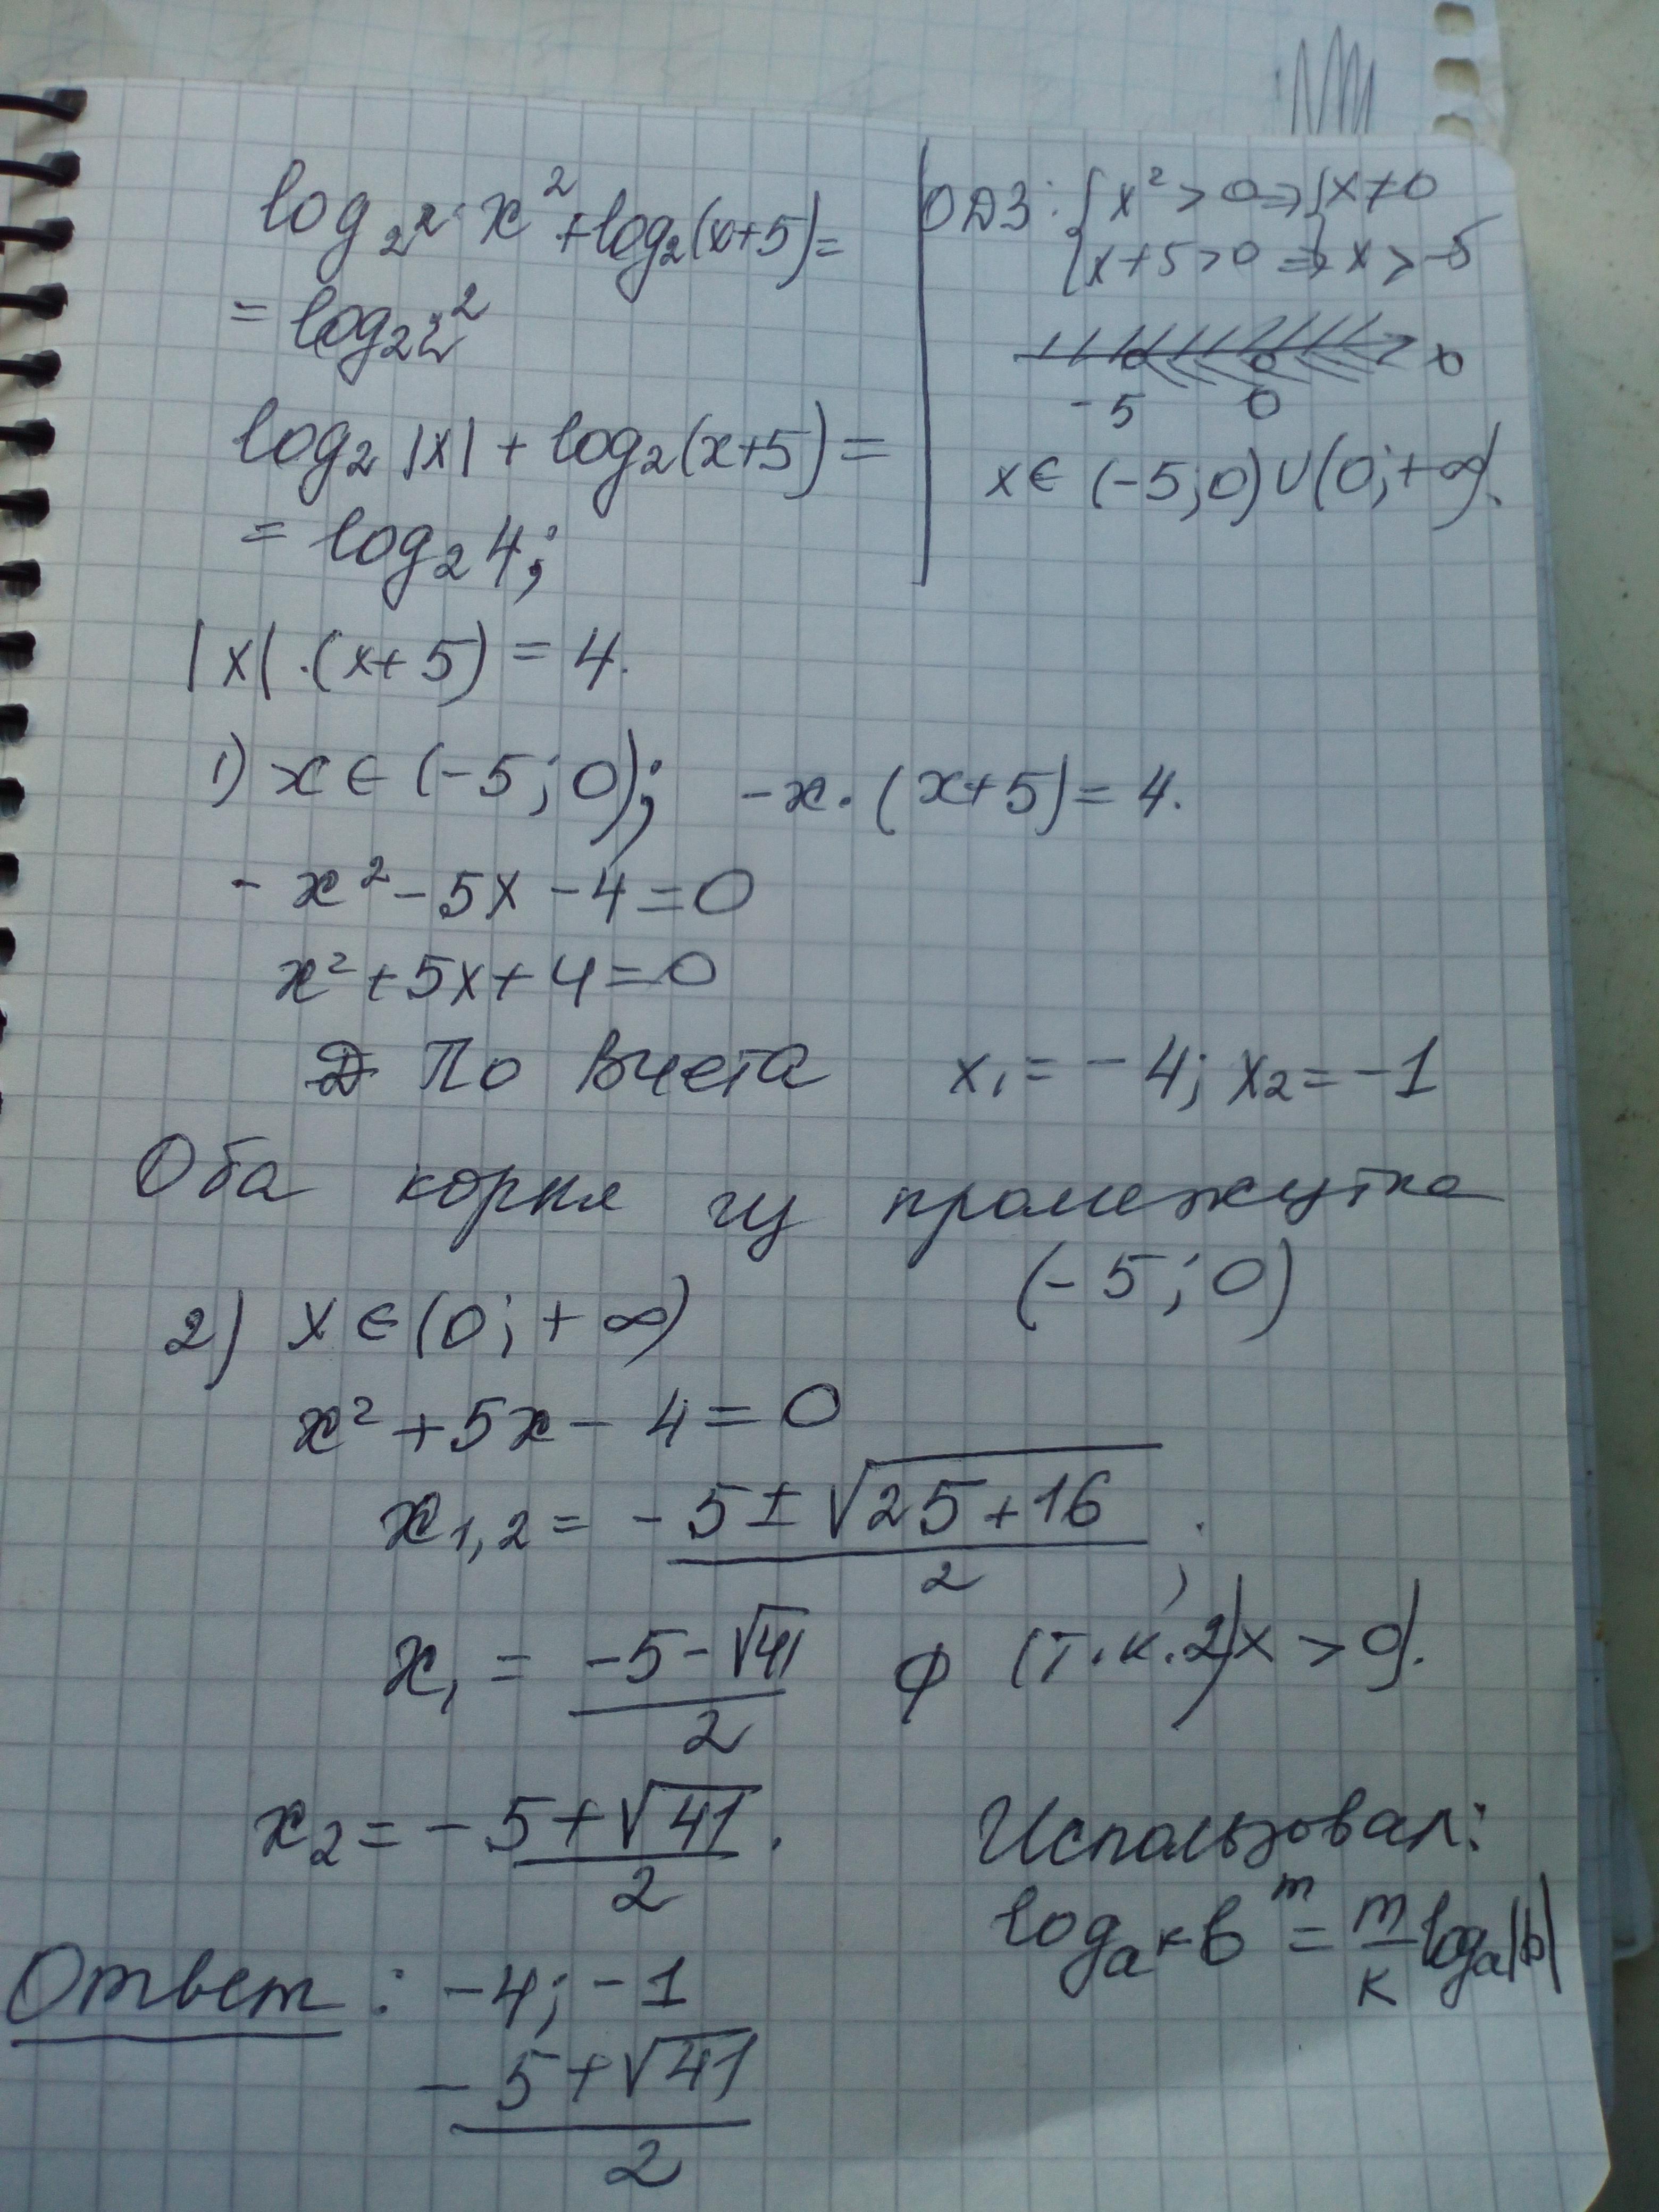 log₂² x² + log₂(x+5) =
= log₂2²
log₂|x| + log₂(x+5) =
= log₂4;
ОДЗ: { x² > 0 => { x ≠ 0
{ x+5 > 0 => x > -5
-5 0 x
x ∈ (-5; 0) ∪ (0; +∞).
|x|·(x+5) = 4.
1) x ∈ (-5; 0); -x·(x+5) = 4.
-x² - 5x - 4 = 0
x² + 5x + 4 = 0
По Виета x₁ = -4; x₂ = -1
Оба корня из промежутка
(-5; 0)
2) x ∈ (0; +∞)
x² + 5x - 4 = 0
x₁,₂ = (-5 ± √(25+16))/2;
x₁ = (-5 - √41)/2 ∅ (т.к. 2) x > 0).
x₂ = (-5 + √41)/2.
Использовал:
logₐᵏ bᵐ = m/k logₐ|b|
Ответ: -4; -1
(-5 + √41)/2